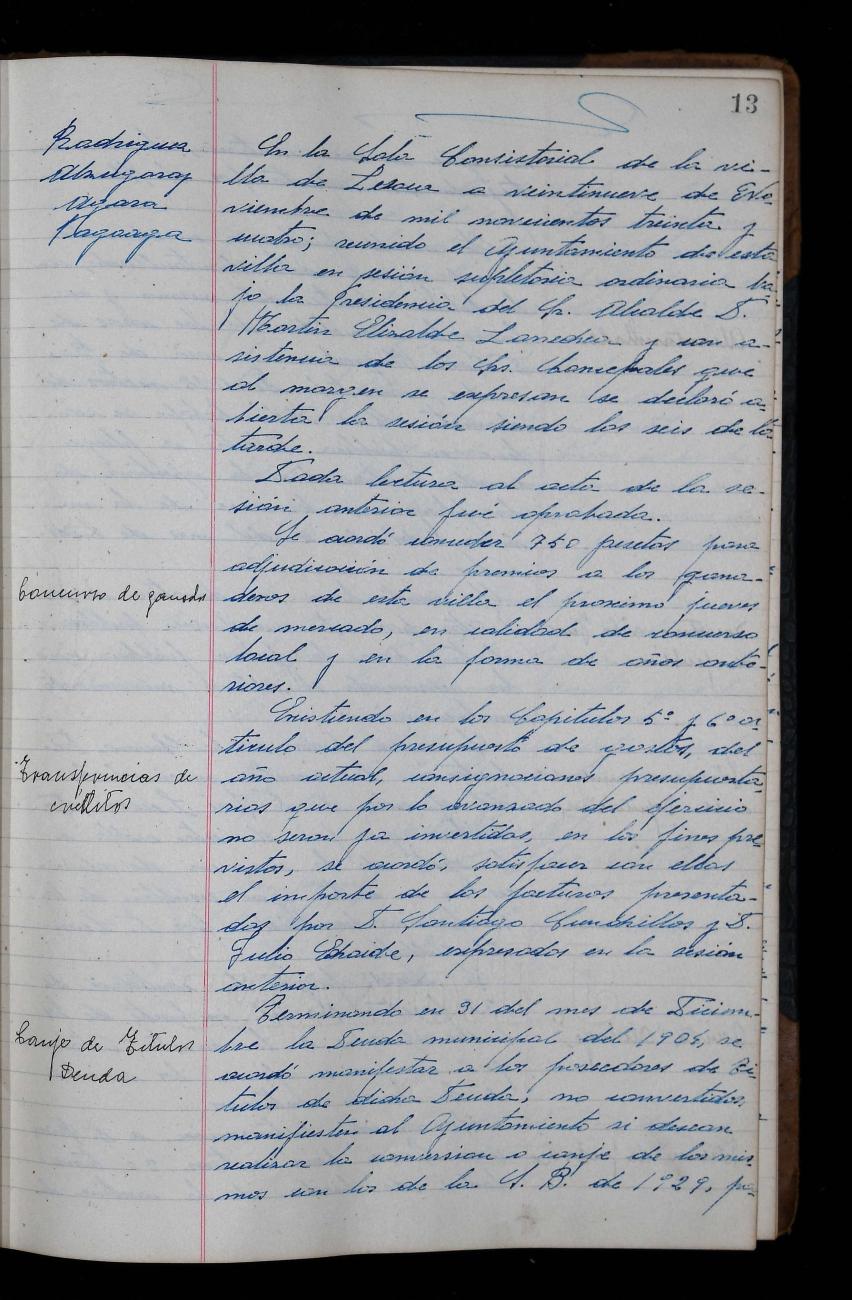 13
Rodriguez
Alzugaray
Agara
En la Sala Consistorial de la vi-
lla de Lesaca a veintinueve de No-
viembre de mil novecientos treinta y
cuatro; reunido el Ayuntamiento de esta
villa en sesión supletoria ordinaria ba-
jo la Presidencia del Sr. Alcalde D.
Martin Elizalde Lanedra y con a-
sistencia de los Srs. Concejales que
al margen se expresan se declaró a-
bierta la sesión siendo las seis de la
tarde.
Dada lectura al acta de la se-
sión anterior fué aprobada.
Concurso de ganado
Se acordó conceder 750 pesetas para
adjudicación de premios a los gana-
deros de esta villa el proximo jueves
de mercado, en calidad de concurso
local y en la forma de años ante-
riores.
Transferencias de
créditos
Existiendo en los Capitulos 5º y 6º ar
ticulo del presupuesto de gastos, del
año actual, consignaciones presupuesta-
rias que por lo avanzado del ejercicio
no seran ya invertidas, en los fines pre-
vistos, se acordó, satisfacer con ellas
el importe de las facturas presenta-
das por D. Santiago Cunchillos y D.
Julio Echaide, expresadas en la sesión
anterior.
Canje de Titulos
Deuda
Terminando en 31 del mes de Diciem-
bre la Deuda municipal del 1904, se
acordó manifestar a los poseedores de Ti-
tulos de dicha Deuda, no convertidos,
manifiesten al Ayuntamiento si desean
realizar la conversion o canje de los mis-
mos con los de la S. B. de 1929, pa-